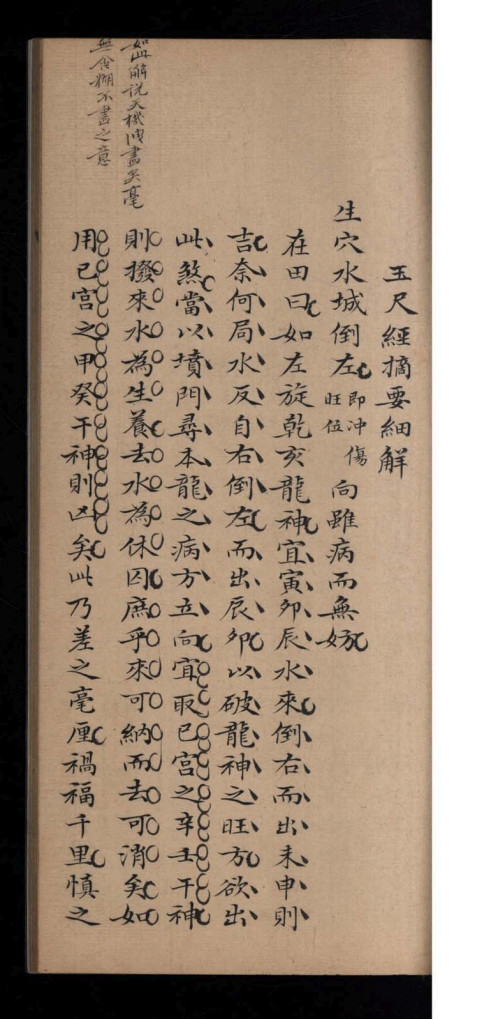 玉尺經摘要細解
生穴水城倒左即沖傷旺位向雖病而無妨
在田曰如左旋乾亥龍神宜寅卯辰水來倒右而出未申則
吉奈何局水反自右倒左而出辰卯以破龍神之旺方欲出
此煞當以墳門尋本龍之病方立向宜取巳宮之辛壬干神
則撥來水為生養去水為休囚庶乎來可納而去可消矣如
用巳宮之甲癸干神則凶矣此乃差之毫厘禍福千里慎之
如此解說天機洩盡矣毫
無含糊不盡之意